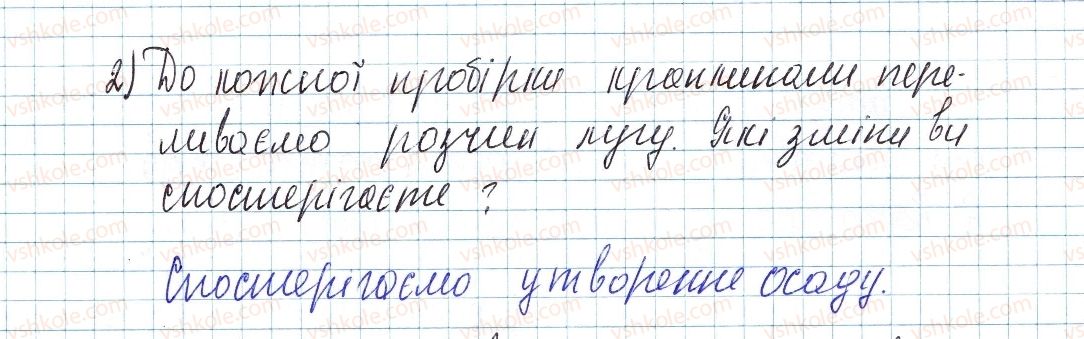 2) До кожної пробірки краплинами пере-
ливаємо розчин лугу. Які зміни ви
спостерігаєте ?
Спостерігаємо утворення осаду.